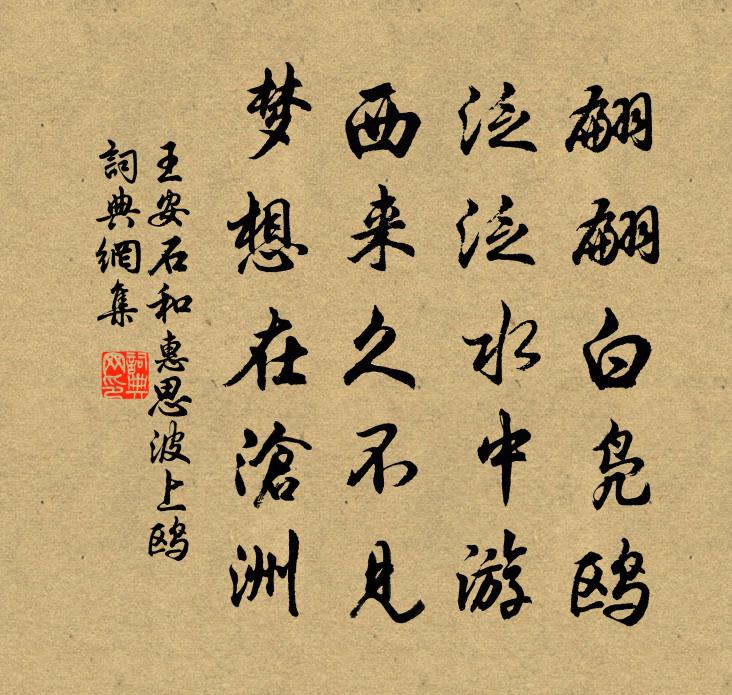 翩翩白凫鸥
泛泛水中游
西来久不见
梦想在滄洲
王安石和惠思波上鸥
詞典網集
詞典网印